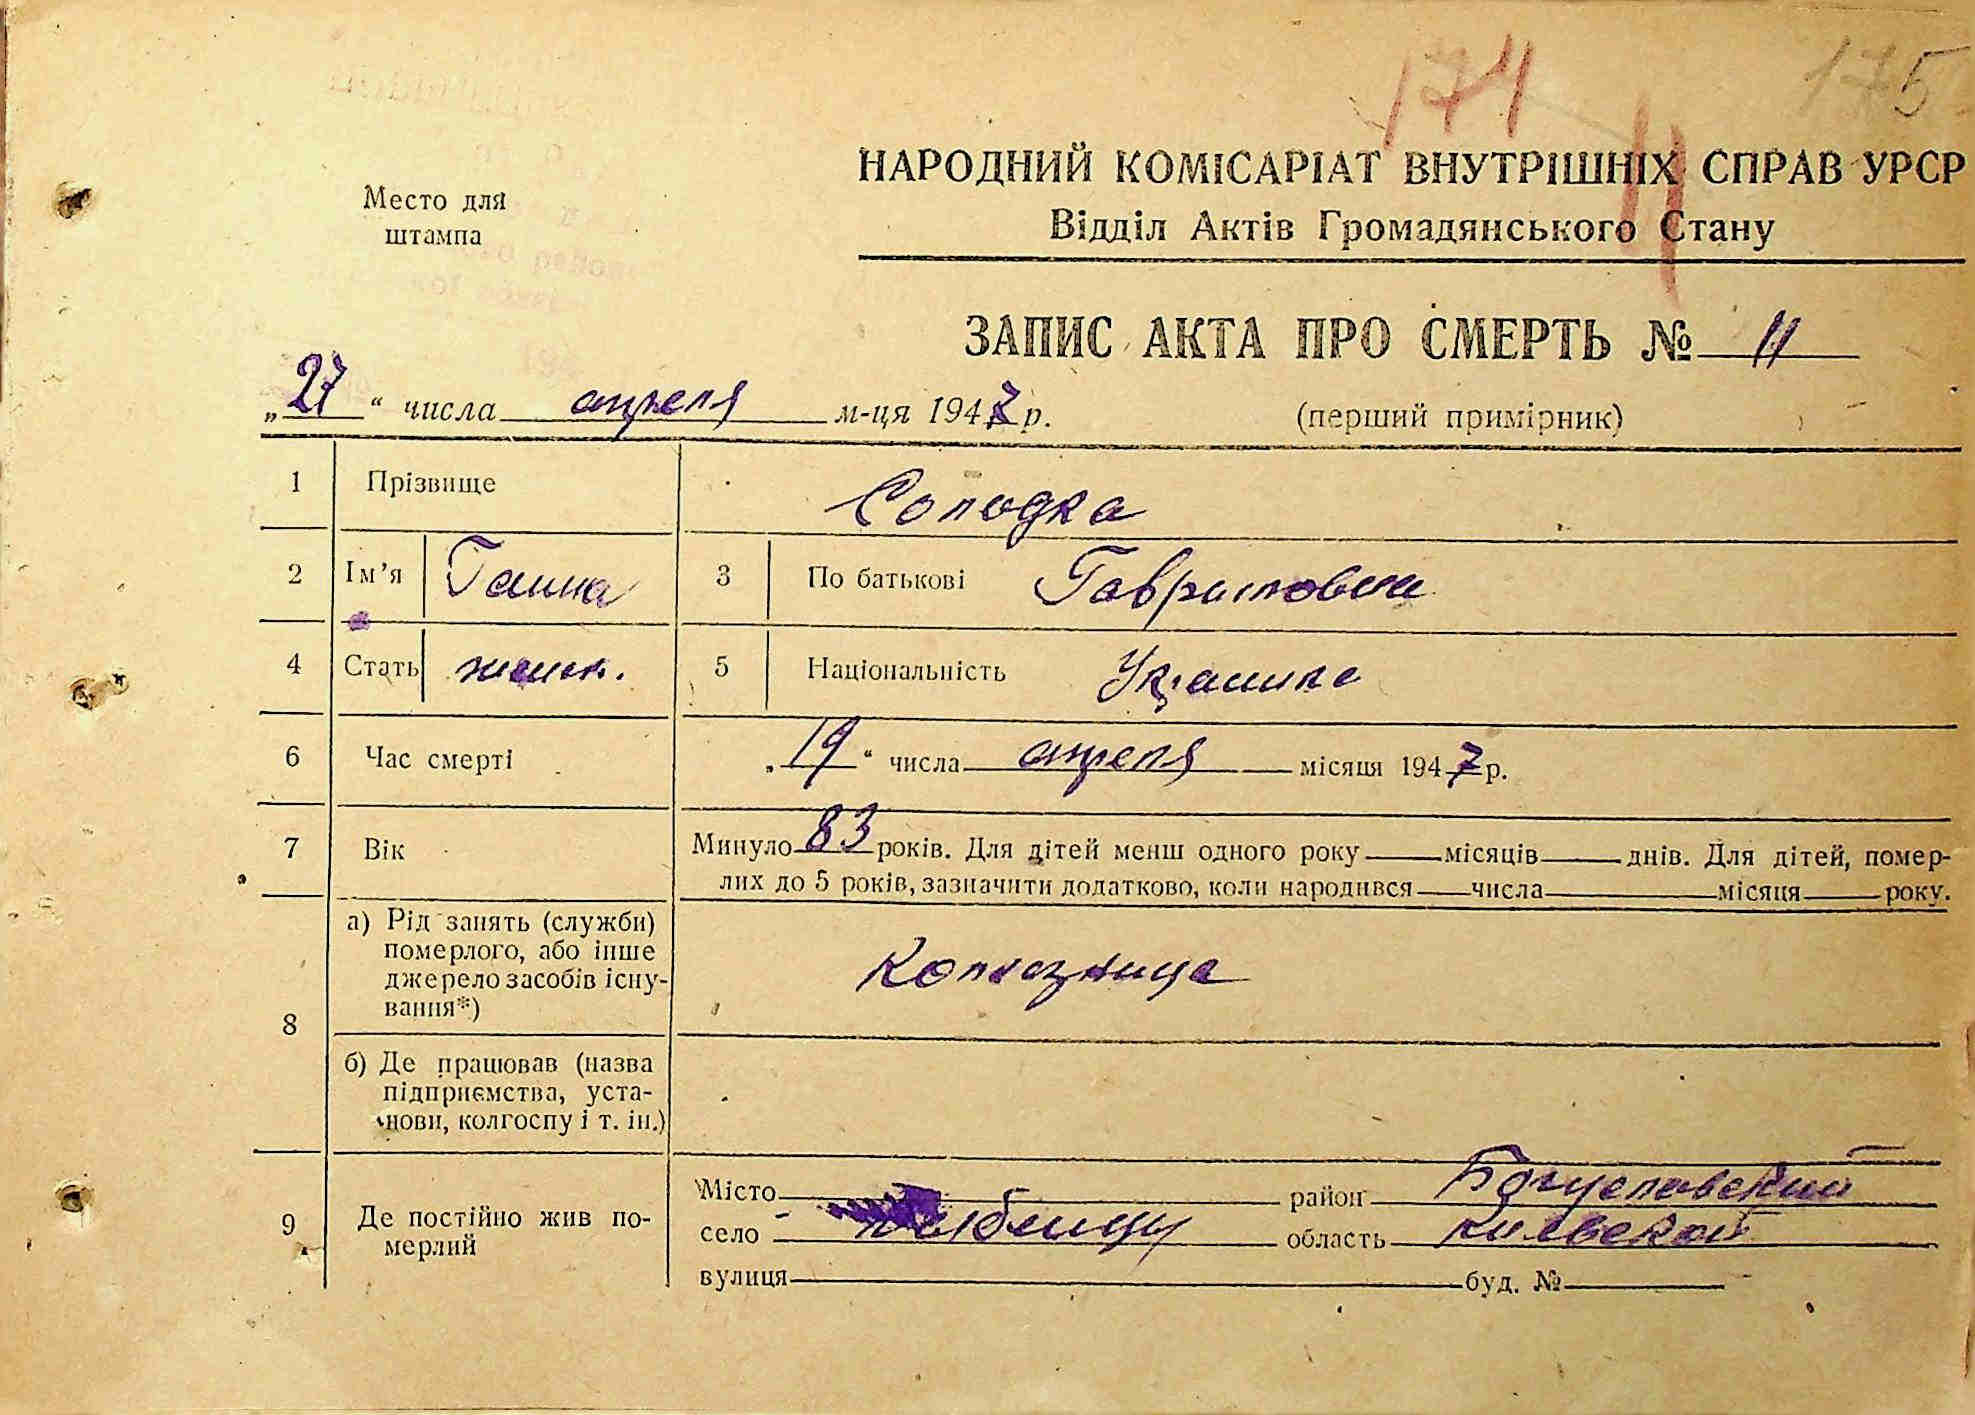 174
175
Место для
штампа
НАРОДНИЙ КОМІСАРІАТ ВНУТРІШНІХ СПРАВ УРСР
Відділ Актів Громадянського Стану
ЗАПИС АКТА ПРО СМЕРТЬ № 11
„27“ числа апреля м-ця 1947 р.
(перший примірник)
1 Прізвище Солодка
2 Ім’я Ганна 3 По батькові Гавриловна
4 Стать женск. 5 Національність Украинка
6 Час смерті „19“ числа апреля місяця 1947 р.
7 Вік Минуло 83 років. Для дітей менш одного року місяців днів. Для дітей, помер-
лих до 5 років, зазначити додатково, коли народився числа місяця року.
8 а) Рід занять (служби)
померлого, або інше
джерело засобів існу-
вання*)
Колхозница
б) Де працював (назва
підприємства, уста-
нови, колгоспу і т. ін.)
9 Де постійно жив по-
мерлий
Місто район Богуславский
село область Киевской
вулиця буд. №